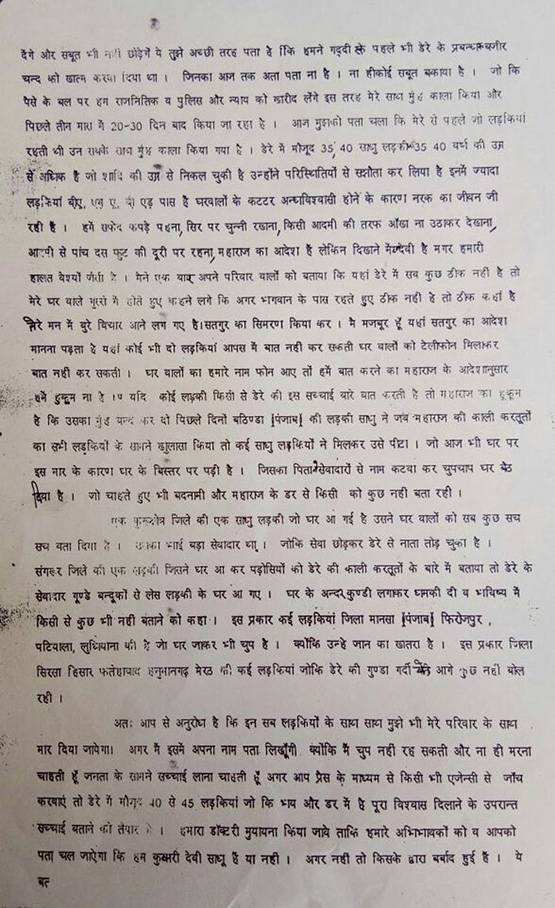 देंगे और सबूत भी नही छोड़ेगें ये तुझे अच्छी तरह पता है कि हमने गद्दी से पहले भी डेरे के प्रबन्धक फकीर
चन्द को खात्म करवा दिया था । जिनका आज तक अता पता ना है । ना हीकोई सबूत बकाया है । जो कि
पैसे के बल पर हम राजनितिक व पुलिस और न्याय को खारीद लेंगे इस तरह मेरे साथ मुंह काला किया और
पिछले तीन मास में 20-30 दिन बाद किया जा रहा है । आज मुझको पता चला कि मेरे से पहले जो लड़कियां
रहती थी उन सबके साथ मुंह काला किया गया है । डेरे में मौजूद 35, 40 साधु लड़की 35 40 वर्ष की उम्र
से अधिक है जो शादि की उम्र से निकल चुकी है उन्होने परिस्थितियों से समझौता कर लिया है इनमें ज्यादा
लड़कियां बीए, एम ए, बी एड़ पास है घरवालों के कटटर अन्धविश्वासी होने के कारण नरक का जीवन जी
रही है । हमें सफेद कपड़े पहना, सिर पर चुन्नी रखाना, किसी आदमी की तरफ आँखा ना उठाकर देखाना,
आदमी से पांच दस फुट की दूरी पर रहना, महाराज का आदेश है लेकिन दिखाने में देवी है मगर हमारी
हालत वेश्यों जैसी है । मैने एक बार अपने परिवार वालों को बताया कि यहां डेरे में सब कुछ ठीक नही है तो
मेरे घर वाले गुस्से में होते हुए कहने लगे कि अगर भगवान के पास रहते हुए ठीक नही है तो ठीक कहां है
तेरे मन में बुरे विचार आने लग गए है। सतगुर का सिमरण किया कर । मै मजबूर हूँ यहां सतगुर का आदेश
मानना पड़ता है यहां कोई भी दो लड़कियां आपस में बात नही कर सकती घर वालों को टेलीफोन मिलाकर
बात नही कर सकती । घर वालों का हमारे नाम फोन आए तो हमें बात करने का महाराज के आदेशानुसार
हमें हुकूम ना है । यदि कोई लड़की किसी से डेरे की इस सच्चाई बारे बात करती है तो महाराज का हुकूम
है कि उसका मुंह बन्द कर दो पिछले दिनों बठिण्डा [पंजाब] की लड़की साधु ने जब महाराज की काली करतूतों
का सभी लड़कियों के सामने खुलासा किया तो कई साधु लड़कियों ने मिलकर उसे पीटा । जो आज भी घर पर
इस मार के कारण घर के बिस्तर पर पड़ी है । जिसका पिता सेवादारों से नाम कटवा कर चुपचाप घर बैठ
दिया है । जो चाहते हुए भी बदनामी और महाराज के डर से किसी को कुछ नही बता रही ।
एक कुरूक्षेत्र जिले की एक साधु लड़की जो घर आ गई है उसने घर वालों को सब कुछ सच
सच बता दिया है । उसका भाई बड़ा सेवादार था । जोकि सेवा छोड़कर डेरे से नाता तोड़ चुका है ।
संगरूर जिले की एक लड़की जिसने घर आ कर पड़ोसियों को डेरे की काली करतूतों के बारे में बताया तो डेरे के
सेवादार गूण्डे बन्दूकों से लेस लड़की के घर आ गए । घर के अन्दर कुण्डी लगाकर धमकी दी व भविष्य में
किसी से कुछ भी नही बताने को कहा । इस प्रकार कई लड़कियां जिला मानसा [पंजाब] फिरोजपुर,
पटियाला, लुधियाना की है जो घर जाकर भी चुप है । क्योंकि उन्हे जान का खातरा है । इस प्रकार जिला
सिरसा हिसार फतेहाबाद हनुमानगढ़ मेरठ की कई लड़कियां जोकि डेरे की गुण्डा गर्दी के आगे कुछ नही बोल
रही ।
अतः आप से अनुरोध है कि इन सब लड़कियों के साथ साथ मुझे भी मेरे परिवार के साथ
मार दिया जायेगा। अगर मैं इसमें अपना नाम पता लिखूँगी क्योंकि मैं चुप नही रह सकती और ना ही मरना
चाहती हूँ जनता के सामने सच्चाई लाना चाहती हूँ अगर आप प्रैस के माध्यम से किसी भी एजेन्सी से जाँच
करवाएं तो डेरे में मौजूद 40 से 45 लड़कियां जो कि भय और डर में है पूरा विश्वास दिलाने के उपरान्त
सच्चाई बताने को तैयार है । हमारा डॉक्टरी मुयायना किया जाये ताकि हमारे अभिभावकों को व आपको
पता चल जाऐगा कि हम कुमारी देवी साधू है या नही । अगर नही तो किसके द्वारा बर्बाद हुई है । ये
बत